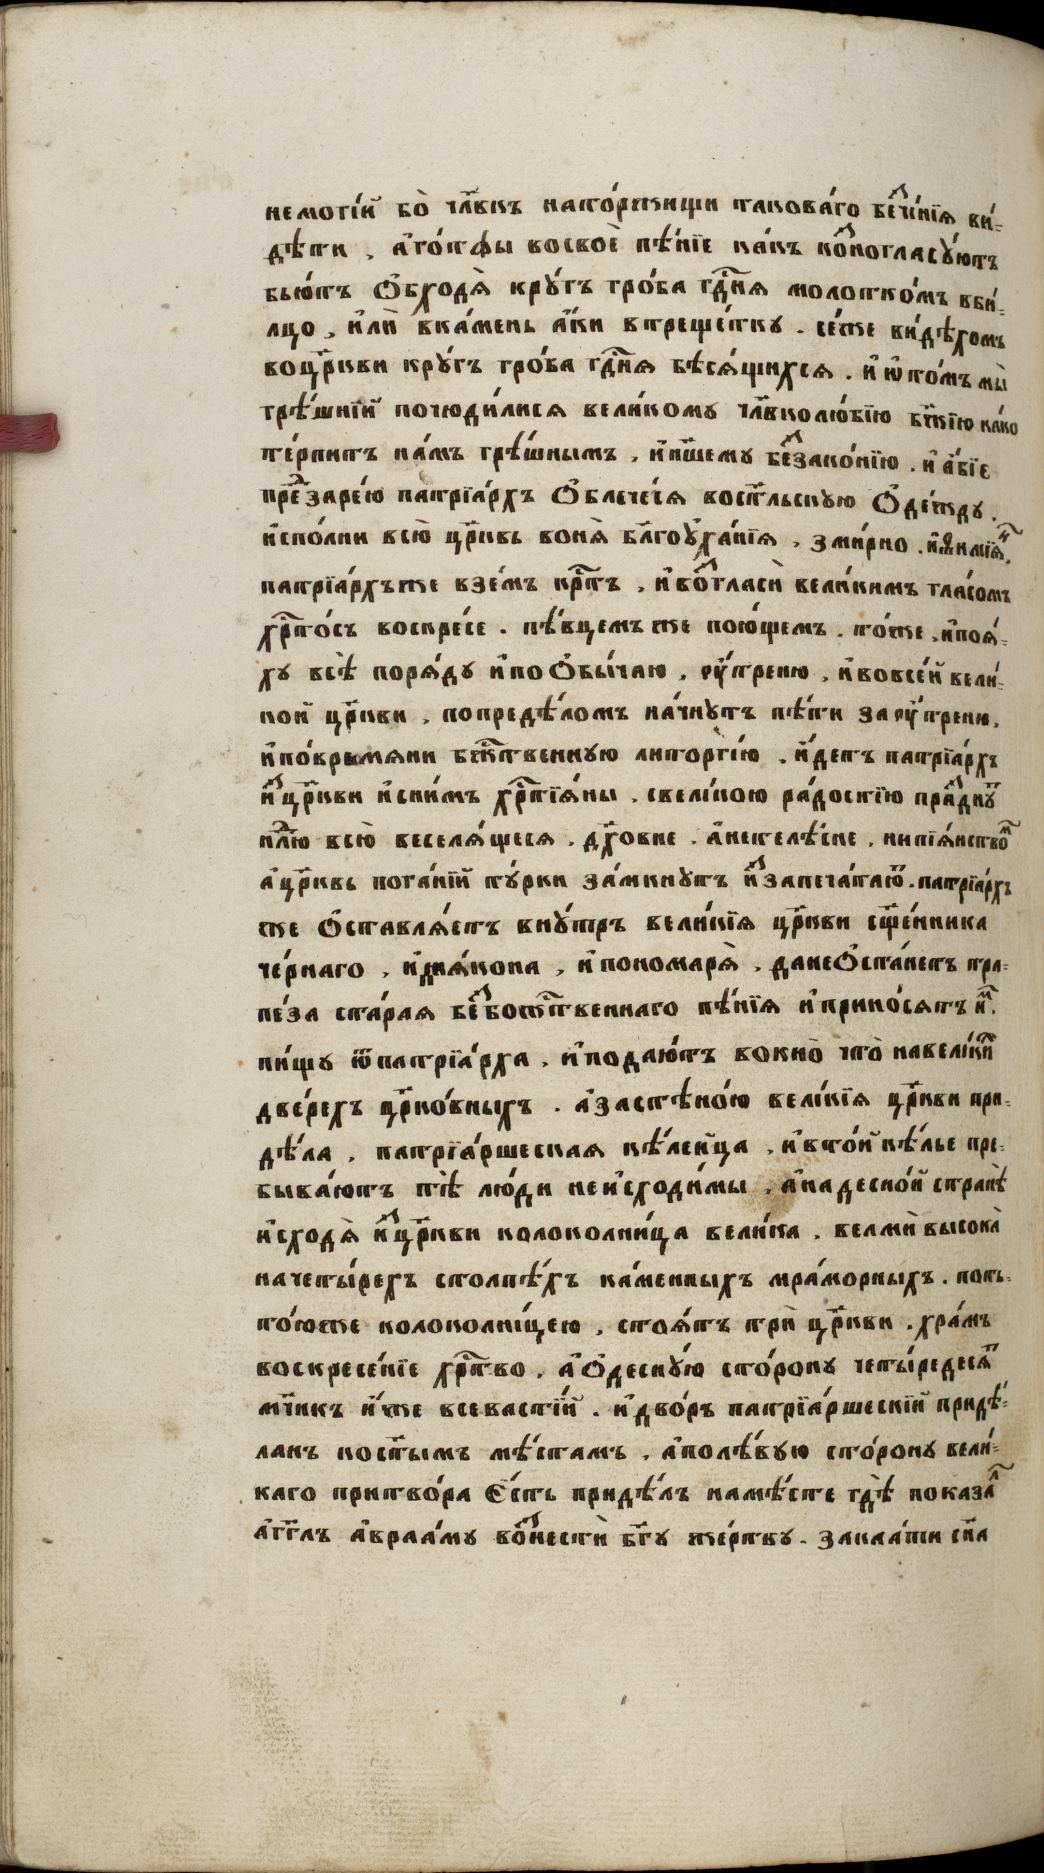 немогі́й бо̀ чл҃вкъ натр́жищи такова́го беⷥчи́нїѧ ви́-
дѣти , а҆го́тфы восвоѐ пѣ́нїе ка́къ ко́зⷧогласу́ютъ
бью́тъ Ѻ҆бходѧ̀ кру́гъ гро́ба гдⷭ҇нѧ молотко́мъ вби́-
лцо , и҆лѝ вка́мень а҆́ки втреще́тку . се́же ви́дѣхомъ
воцр҃кви кру́гъ гро́ба гдⷭ҇нѧ бѣсѧ́щихсѧ . и҆ ѡ҆то́мъ мы̀
грѣ́шнїй почюди́лисѧ вели́кому чл҃вколю́бїю бж҃їю ка́ко
те́рпитъ на́мъ грѣ́шнымъ , и҆ н҃шему беⷥзако́нїю . и҆ а҆́бїе
преⷣзаре́ю патрїа́рхъ Ѻ҆блече́сѧ вост҃льскую Ѻ҆де́жду .
и҆спо́лни всю̀ цр҃ковь вонѧ̀ бл҃гоуха́нїѧ , зми́рно . и҆ѳимїѧⷨ .
патрїа́рхъже взе́мъ крⷭ҇тъ , и҆ воⷥгласѝ вели́кимъ гла́сомъ
хрⷭ҇то́съ воскре́се . пѣвцемъже пою́щемъ . то́же , и҆поѧ́-
ху всѣ̀ порѧ́ду и҆по Ѻ҆бы́чаю , ѹ҆́треню , и҆вовсе́й вели́-
кой цр҃кви , попредѣ́ломъ на́чнутъ пѣ́ти заѹ҆́трени ,
и҆по́времѧни бжⷭ҇твенную литоргі́ю . и҆́детъ патрїа́рхъ
иⷥцр҃кви и҆сни́мъ хрⷭ҇тїѧ́ны , свели́кою ра́достїю праⷥднуⷮ
нⷣлю всю̀ веселѧ́щесѧ . дх҃овне . а҆нетеле́сне , нипїѧ́нствоⷨ
а҆ цр҃ковь пога́нїй ту́рки за́мкнутъ и҆ запеча́таюⷮ . патрїа́рхъ
же Ѻ҆ставлѧ́етъ вну́трь вели́кїѧ цр҃кви сщ҃е́нника
че́рнаго , и҆дїѧ́кона , и҆ пономарѧ̀ , данеѺ҆ста́нетъ тра-
пе́за ста́раѧ беⷥбожⷭ҇твеннаго пѣ́нїѧ и҆ прино́сѧтъ и҆ⷨ .
пи́щу ѿпатрїа́рха , и҆ подаю́тъ вокно̀ что̀ навели́киⷯ
две́рехъ цр҃ко́вныхъ . а҆застѣно́ю вели́кїѧ цр҃кви при-
дѣ́ла , патрїа́ршескаѧ кѣ́лейца , и҆ вто́й кѣ́лье пре-
быва́ютъ тѣ̀ лю́ди неи҆сходи́мы , а҆надесно́й странѣ̀
и҆сходѧ̀ иⷥцр҃кви колоколни́ца вели́ка , велмѝ высока̀
начеты́рехъ столпѣ́хъ ка́менныхъ мра́морныхъ . подъ-
то́юже колоколни́цею , стоѧ́тъ трѝ цр҃кви . хра́мъ
воскресе́нїе хрⷭ҇тво , а҆Ѻ҆десну́ю сто́рону четы́редесѧⷮ
мч҃нкъ и҆́же всевасті́й . и҆ дво́ръ патрїа́ршескїй придѣ́-
ланъ кост҃ымъ мѣ́стамъ , а҆полѣ́вую сто́рону вели́-
каго притво́ра Є҆́сть придѣ́лъ намѣ́сте гдѣ̀ показаⷧ
а҆гг҃лъ а҆враа́му воⷥнестѝ бг҃у же́ртву . закла́ти сн҃а